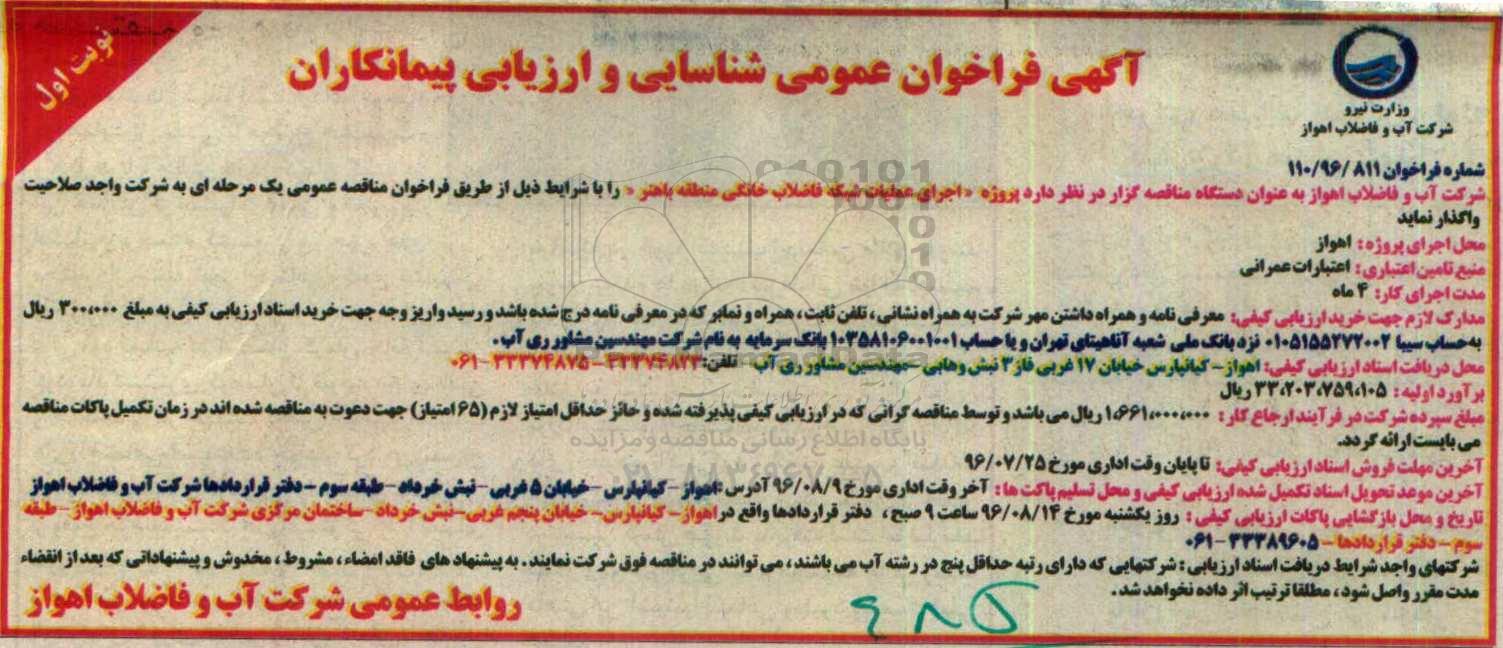 نوبت اول
آگهی فراخوان عمومی شناسایی و ارزیابی پیمانکاران
وزارت نیرو
شرکت آب و فاضلاب اهواز
شماره فراخوان ۸۱۱ /۱۱۰/۹۶
شرکت آب و فاضلاب اهواز به عنوان دستگاه مناقصه گزار در نظر دارد پروژه «اجرای عملیات شبکه فاضلاب خانگی منطقه باهنر» را با شرایط ذیل از طریق فراخوان مناقصه عمومی یک مرحله ای به شرکت واجد صلاحیت
واگذار نماید
محل اجرای پروژه: اهواز
منبع تامین اعتباری: اعتبارات عمرانی
مدت اجرای کار: ۴ ماه
مدارک لازم جهت خرید ارزیابی کیفی: معرفی نامه و همراه داشتن مهر شرکت به همراه نشانی، تلفن ثابت، همراه و نمابر که در معرفی نامه درج شده باشد و رسید واریز وجه جهت خرید اسناد ارزیابی کیفی به مبلغ ۳۰۰،۰۰۰ ریال
به حساب سیبا ۰۱۰۵۱۵۵۲۷۲۰۰۲ نزد بانک ملی شعبه آناهیتای تهران و یا حساب ۱۰۳۵۸۱۰۶۰۰۱۰۰۱ بانک سرمایه به نام شرکت مهندسین مشاور ری آب.
محل دریافت اسناد ارزیابی کیفی: اهواز- کیانپارس خیابان ۱۷ غربی فاز ۳ نبش وهابی -مهندسین مشاور ری آب تلفن: ۳۳۳۷۴۸۲۳ - ۳۳۳۷۴۸۷۵ -۰۶۱
برآورد اولیه: ۳۳،۲۰۳،۷۵۹،۱۰۵ ریال
مبلغ سپرده شرکت در فرآیند ارجاع کار: ۱،۶۶۱،۰۰۰،۰۰۰ ریال می باشد و توسط مناقصه گرانی که در ارزیابی کیفی پذیرفته شده و حائز حداقل امتیاز لازم (۶۵ امتیاز) جهت دعوت به مناقصه شده اند در زمان تکمیل پاکات مناقصه
می بایست ارائه گردد.
آخرین مهلت فروش اسناد ارزیابی کیفی: تا پایان وقت اداری مورخ ۹۶/۰۷/۲۵
آخرین موعد تحویل اسناد تکمیل شده ارزیابی کیفی و محل تسلیم پاکت ها: آخر وقت اداری مورخ ۹۶/۰۸/۹ آدرس :اهواز - کیانپارس - خیابان ۵ غربی - نبش خرداد - طبقه سوم - دفتر قراردادها شرکت آب و فاضلاب اهواز
تاریخ و محل بازگشایی پاکات ارزیابی کیفی: روز یکشنبه مورخ ۹۶/۰۸/۱۴ ساعت ۹ صبح، دفتر قراردادها واقع در اهواز- کیانپارس- خیابان پنجم غربی- نبش خرداد -ساختمان مرکزی شرکت آب و فاضلاب اهواز - طبقه
سوم - دفتر قراردادها - ۳۳۳۸۹۶۰۵ -۰۶۱
شرکتهای واجد شرایط دریافت اسناد ارزیابی: شرکتهایی که دارای رتبه حداقل پنج در رشته آب می باشند، می توانند در مناقصه فوق شرکت نمایند. به پیشنهاد های فاقد امضاء، مشروط، مخدوش و پیشنهاداتی که بعد از انقضاء
مدت مقرر واصل شود، مطلقا ترتیب اثر داده نخواهد شد.
روابط عمومی شرکت آب و فاضلاب اهواز
پایگاه اطلاع رسانی مناقصه و مزایده